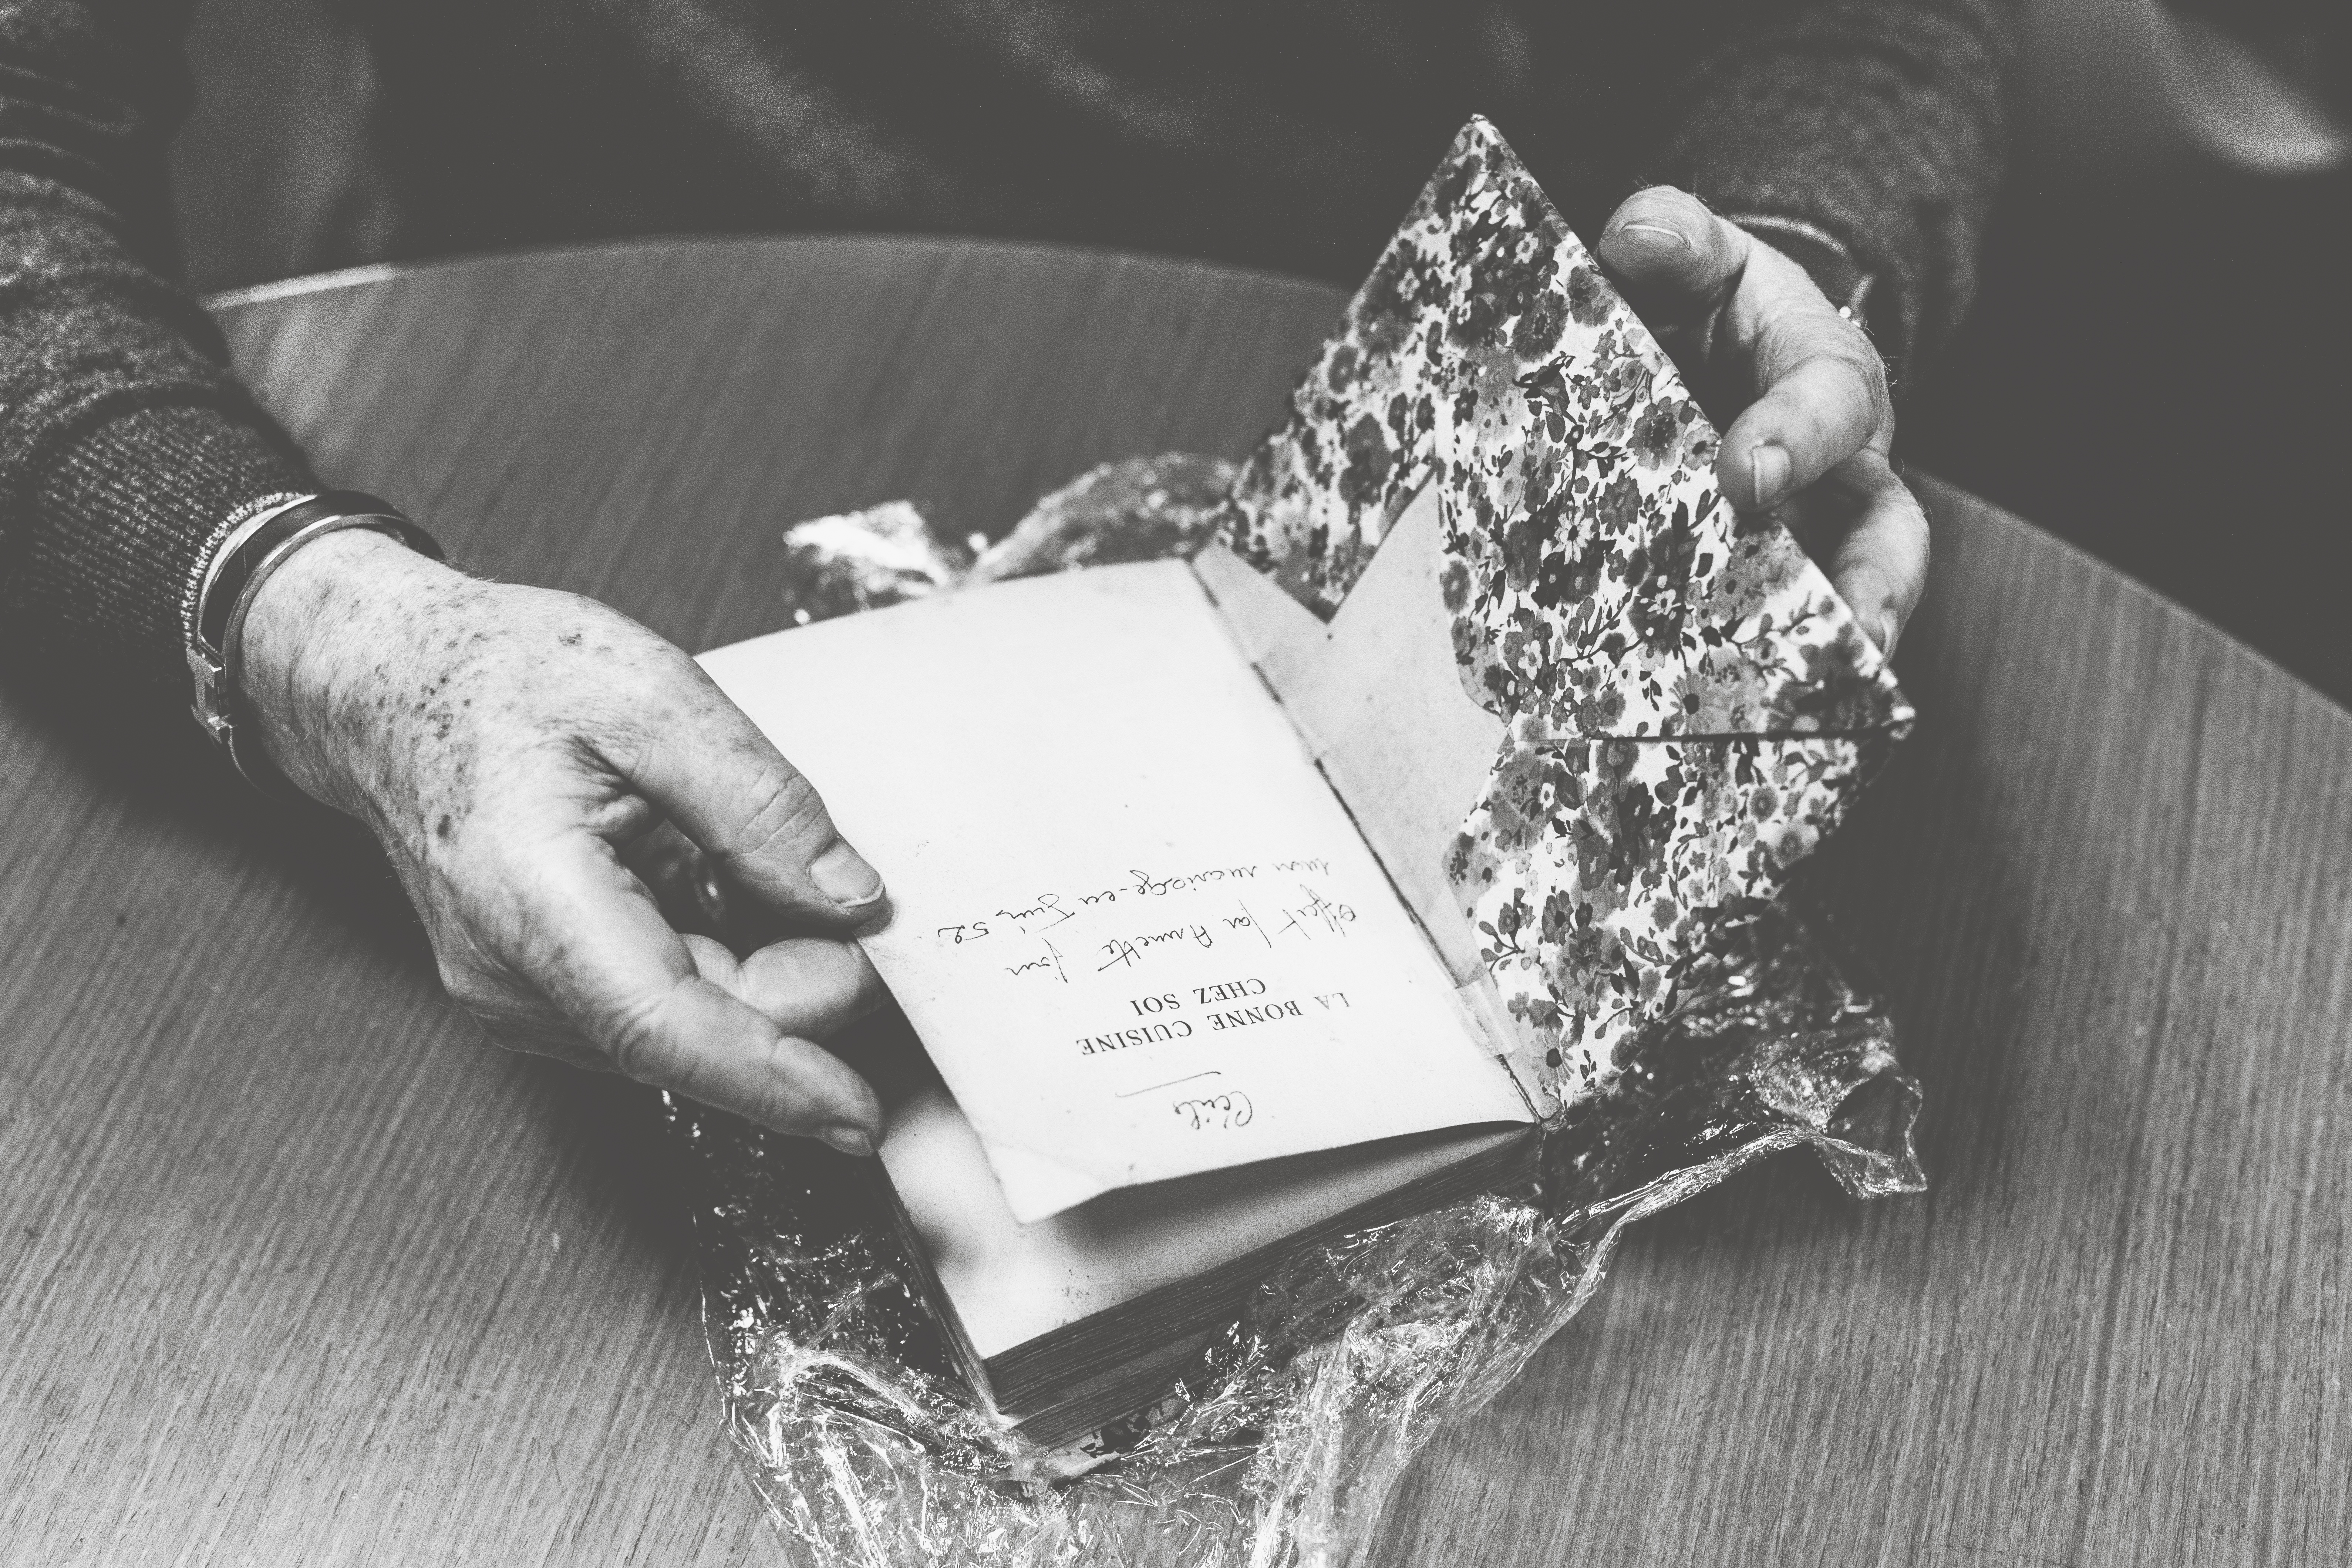 Cécile
LA BONNE CUISINE
CHEZ SOI
Offert par Annette pour
mon mariage en Juin 52